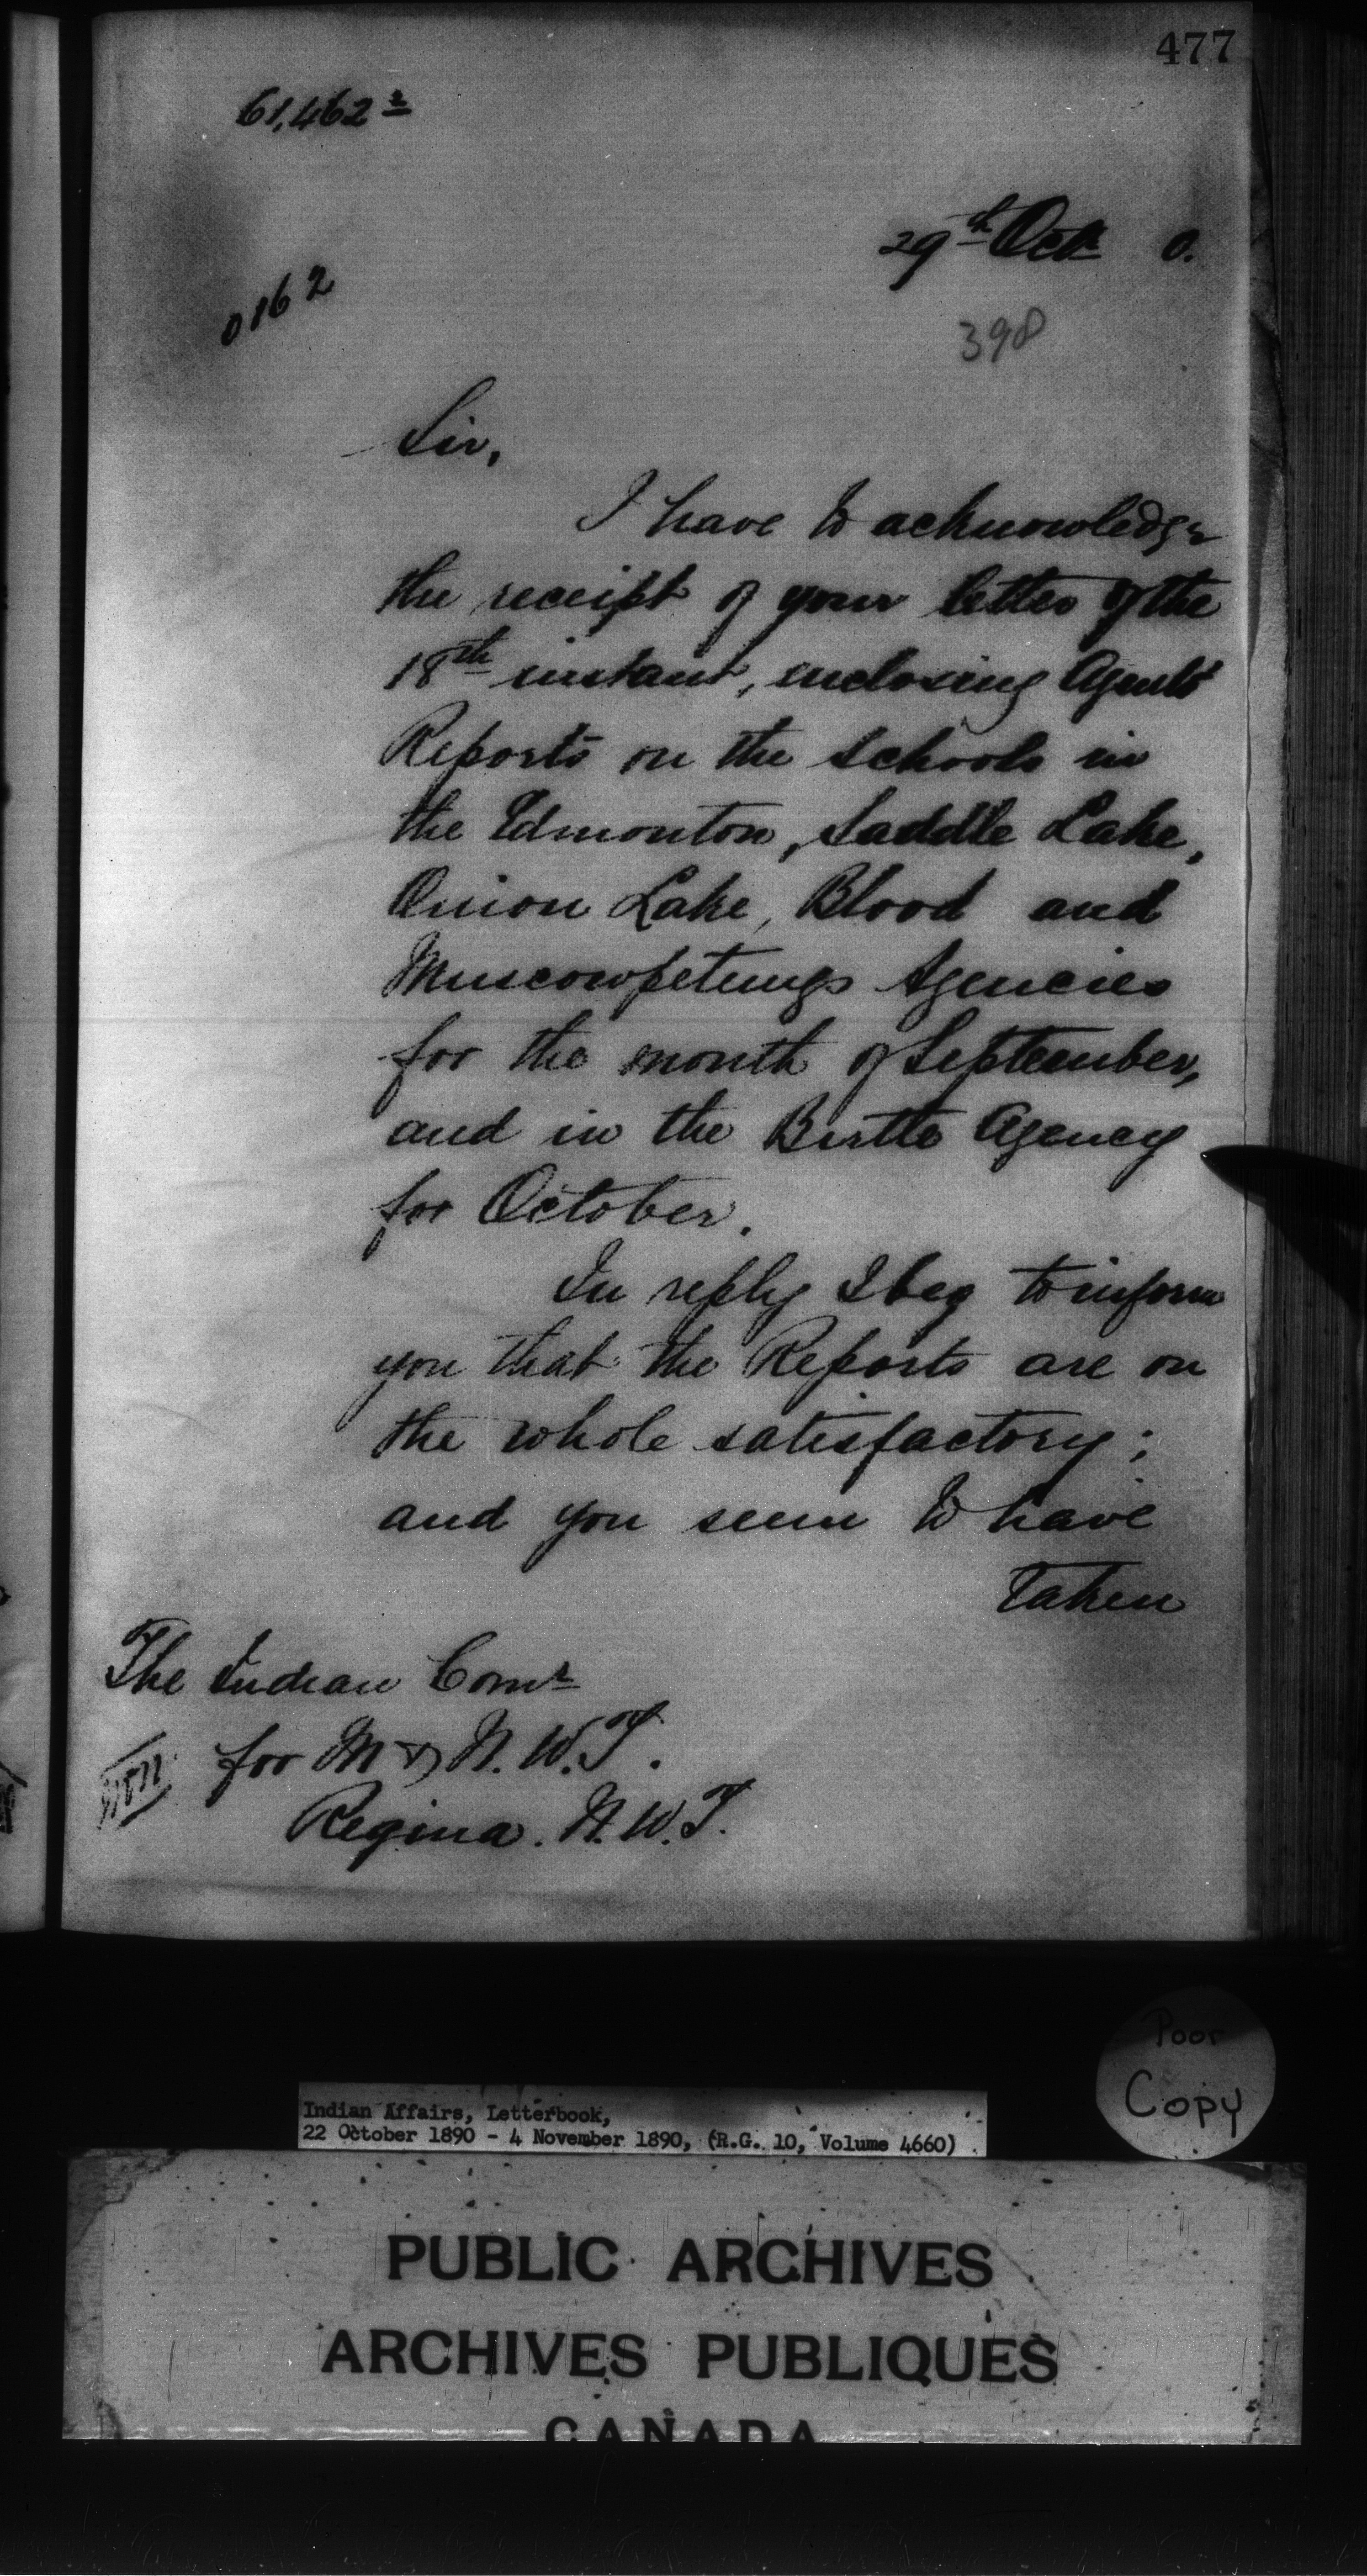 477
61,462²
29th Oct 0.
0162
398
Sir,
I have to acknowledge
the receipt of your letter of the
18th instant, enclosing Agents'
Reports on the schools in
the Edmonton, Saddle Lake,
Onion Lake, Blood and
Muscowpetungs Agencies
for the month of September,
and in the Birtle Agency
for October.
In reply I beg to inform
you that the Reports are on
the whole satisfactory;
and you seem to have
taken
The Indian Comr
for M & N.W.T.
Regina. N.W.T.
Poor
Copy
Indian Affairs, Letterbook,
22 October 1890 - 4 November 1890, (R.G. 10, Volume 4660)
PUBLIC ARCHIVES
ARCHIVES PUBLIQUES
CANADA